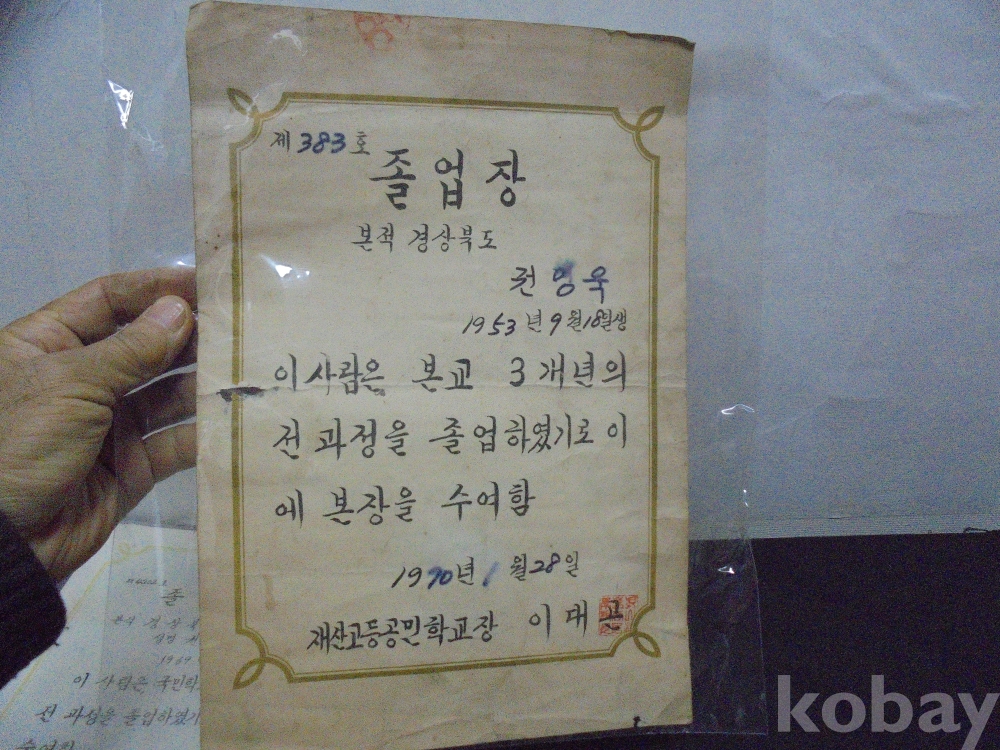 제 383 호
졸업장
본적 경상북도
권영욱
1953년 9월 18일생
이 사람은 본교 3개년의
전 과정을 졸업하였기로 이
에 본장을 수여함
1970년 1월 28일
재산고등공민학교장 이대
졸
1969
이 사람은 국민학
전 과정을 졸업하였기
수여함
kobay